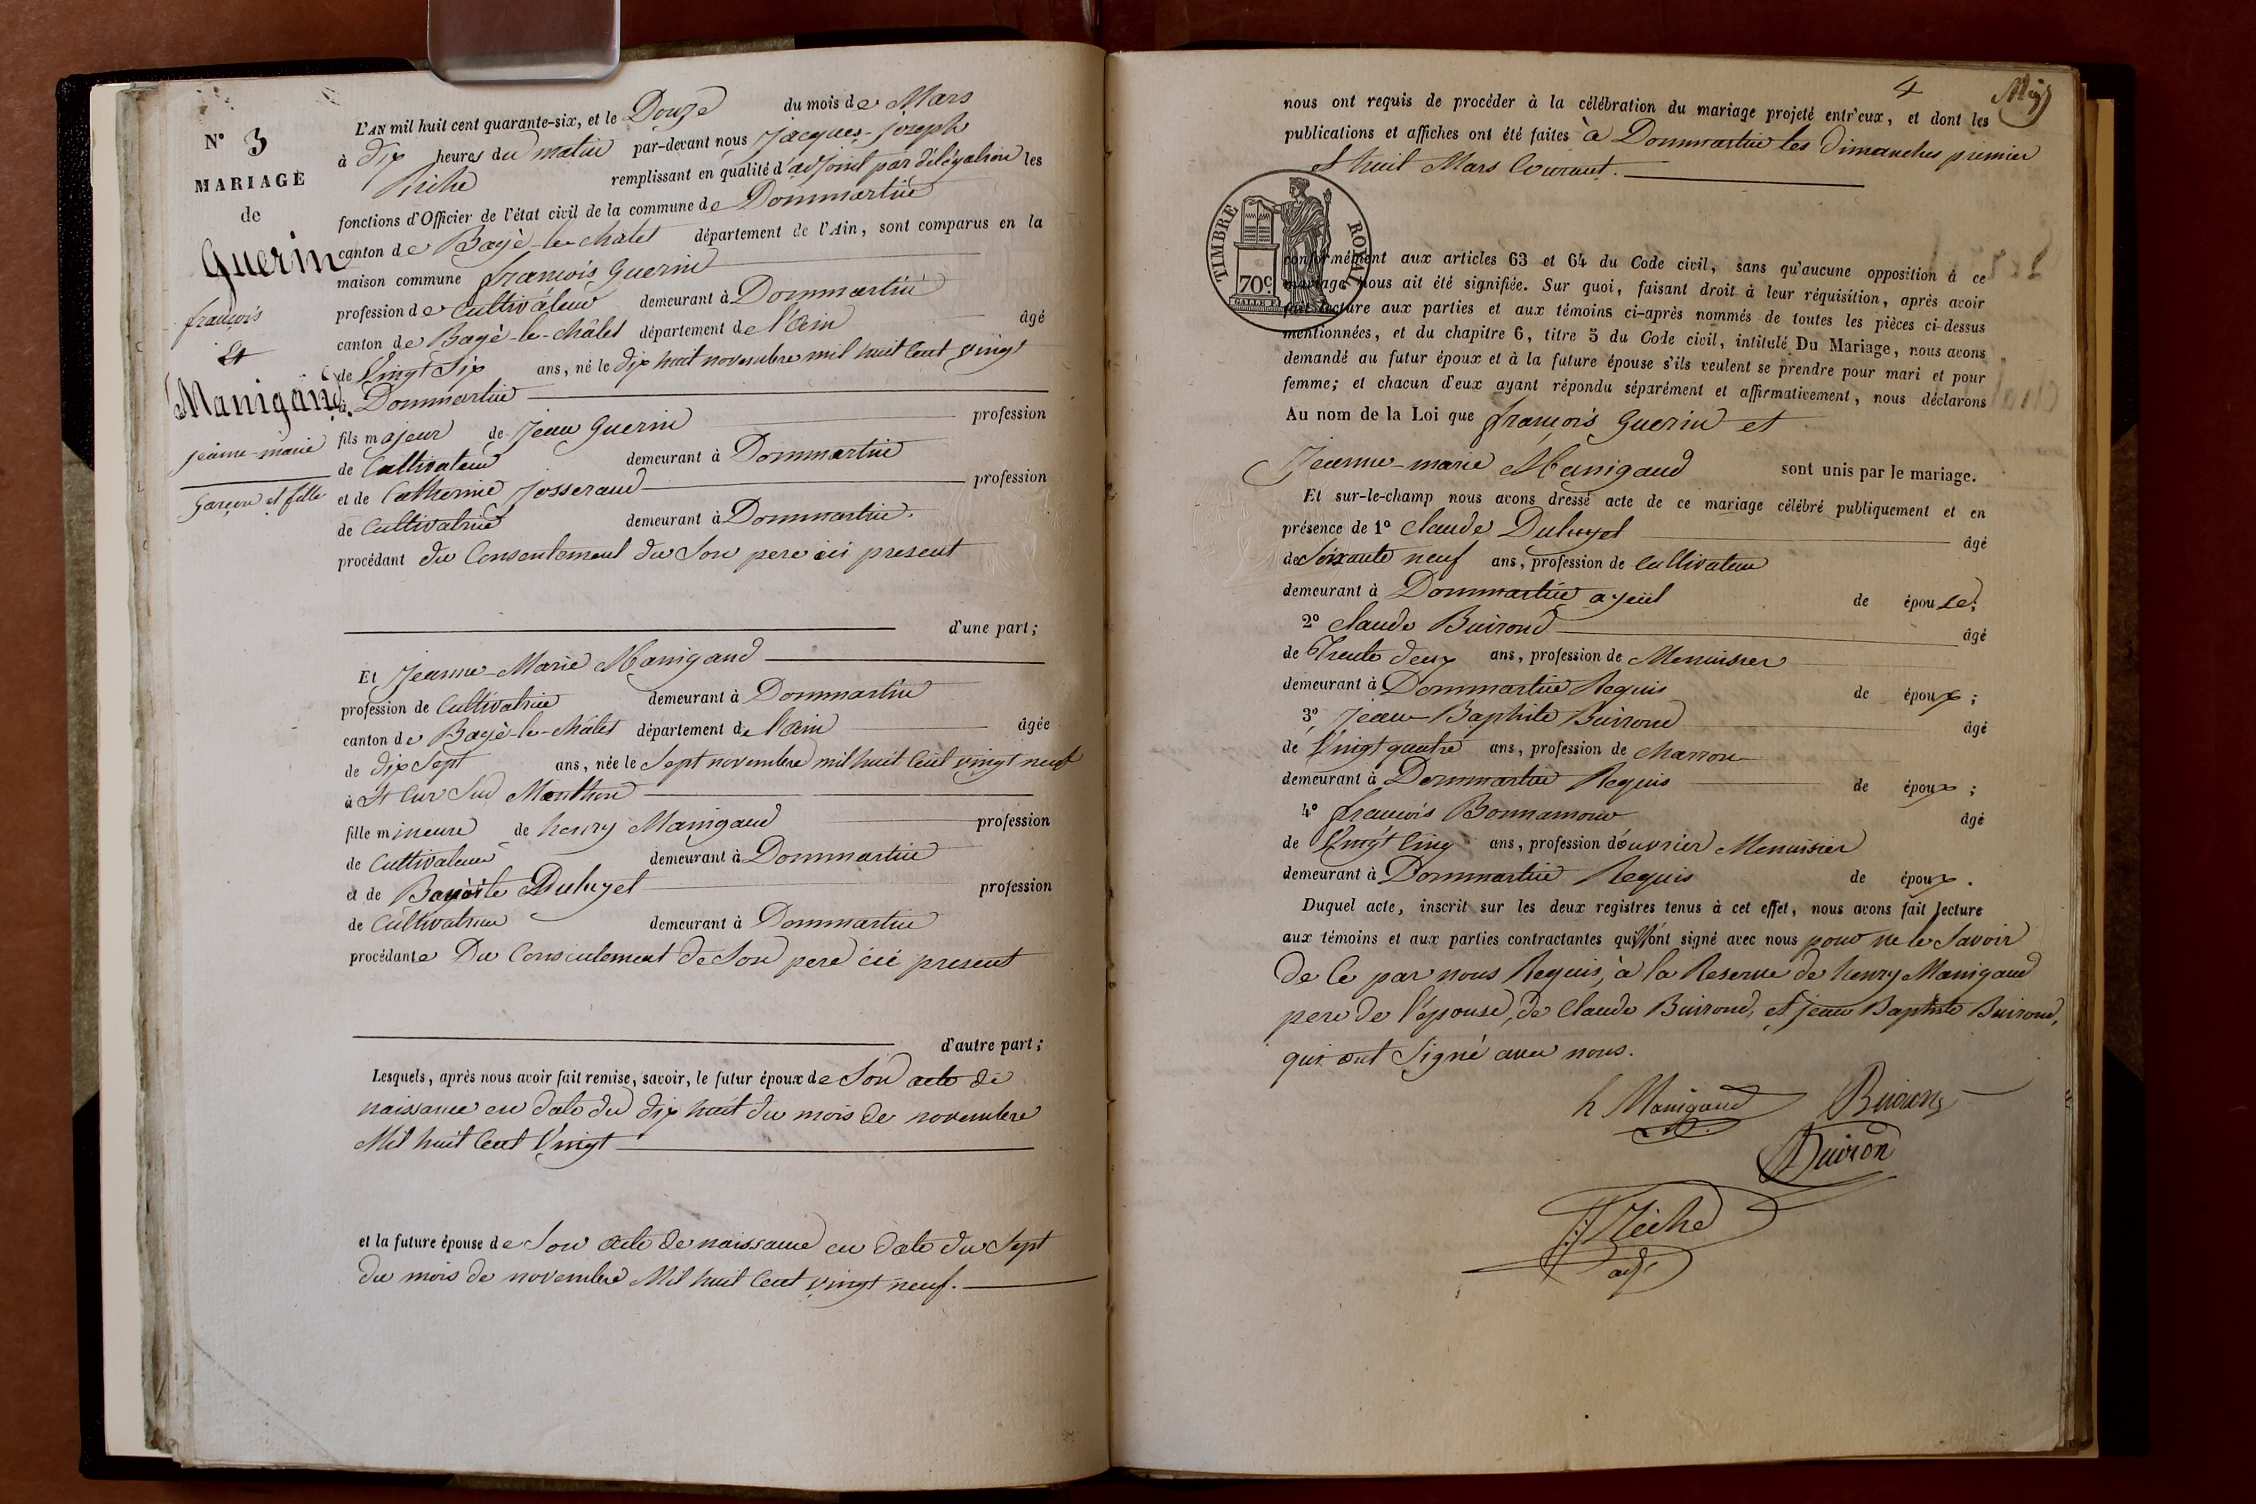 N° 3
MARIAGE
de
Guerin
françois
Et
Manigaud
jeanne-marie
Garçon et fille
L'AN mil huit cent quarante-six, et le Douze du mois de Mars
à dix heures du matin par-devant nous Jacques-joseph
Riche remplissant en qualité d'adjoint par délégation les
fonctions d'Officier de l'état civil de la commune de Dommartin
canton de Bagé-le-châtel département de l'Ain, sont comparus en la
maison commune françois Guerin
profession de Cultivateur demeurant à Dommartin
canton de Bagé-le-châtel département de l'ain âgé
de Vingt Six ans, né le dix huit novembre mil huit Cent Vingt
à Dommartin
fils majeur de Jean Guerin profession
de Cultivateur demeurant à Dommartin
et de Catherine Josserand profession
de Cultivatrice demeurant à Dommartin.
procédant du Consentement de Son pere ici present
d'une part;
Et Jeanne-Marie Manigaud
profession de Cultivatrice demeurant à Dommartin
canton de Bagé-le-châtel département de l'ain âgée
de dix Sept ans, née le Sept novembre mil huit Cent vingt neuf
à St Cyr Sur Menthon
fille mineure de henry Manigaud profession
de Cultivateur demeurant à Dommartin
et de Benoite Duhuyet profession
de Cultivatrice demeurant à Dommartin
procédante Du Consentement de Son pere ici present
d'autre part;
Lesquels, après nous avoir fait remise, savoir, le futur époux de Son acte de
naissance en date du dix huit du mois de novembre
Mil huit Cent Vingt
et la future épouse de Son acte de naissance en date du Sept
du mois de novembre Mil huit Cent vingt neuf.
4
nous ont requis de procéder à la célébration du mariage projeté entr'eux, et dont les
publications et affiches ont été faites à Dommartin les Dimanches premier
et huit Mars Courant.
TIMBRE ROYAL
70c
conformément aux articles 63 et 64 du Code civil, sans qu'aucune opposition à ce
mariage nous ait été signifiée. Sur quoi, faisant droit à leur réquisition, après avoir
fait lecture aux parties et aux témoins ci-après nommés de toutes les pièces ci-dessus
mentionnées, et du chapitre 6, titre 5 du Code civil, intitulé Du Mariage, nous avons
demandé au futur époux et à la future épouse s'ils veulent se prendre pour mari et pour
femme; et chacun d'eux ayant répondu séparément et affirmativement, nous déclarons
Au nom de la Loi que françois Guerin et
Jeanne-marie Manigaud sont unis par le mariage.
Et sur-le-champ nous avons dressé acte de ce mariage célébré publiquement et en
présence de 1° Claude Duhuyet âgé
de Soixante neuf ans, profession de Cultivateur
demeurant à Dommartin ayeul de épouse;
2° Claude Buirond âgé
de Trente deux ans, profession de Menuisier
demeurant à Dommartin Requis de époux;
3° Jean-Baptiste Buirond âgé
de Vingt quatre ans, profession de Charron
demeurant à Dommartin Requis de époux;
4° françois Bonnamour âgé
de Vingt Cinq ans, profession d'ouvrier Menuisier
demeurant à Dommartin Requis de époux.
Duquel acte, inscrit sur les deux registres tenus à cet effet, nous avons fait lecture
aux témoins et aux parties contractantes qui n'ont signé avec nous pour ne le Savoir
de Ce par nous Requis, à la Reserve de henry Manigaud
pere de l'épouse, de Claude Buirond, et jean Baptiste Buirond,
qui ont Signé avec nous.
h Manigaud Buirond
Buiron
JJ Riche
adj